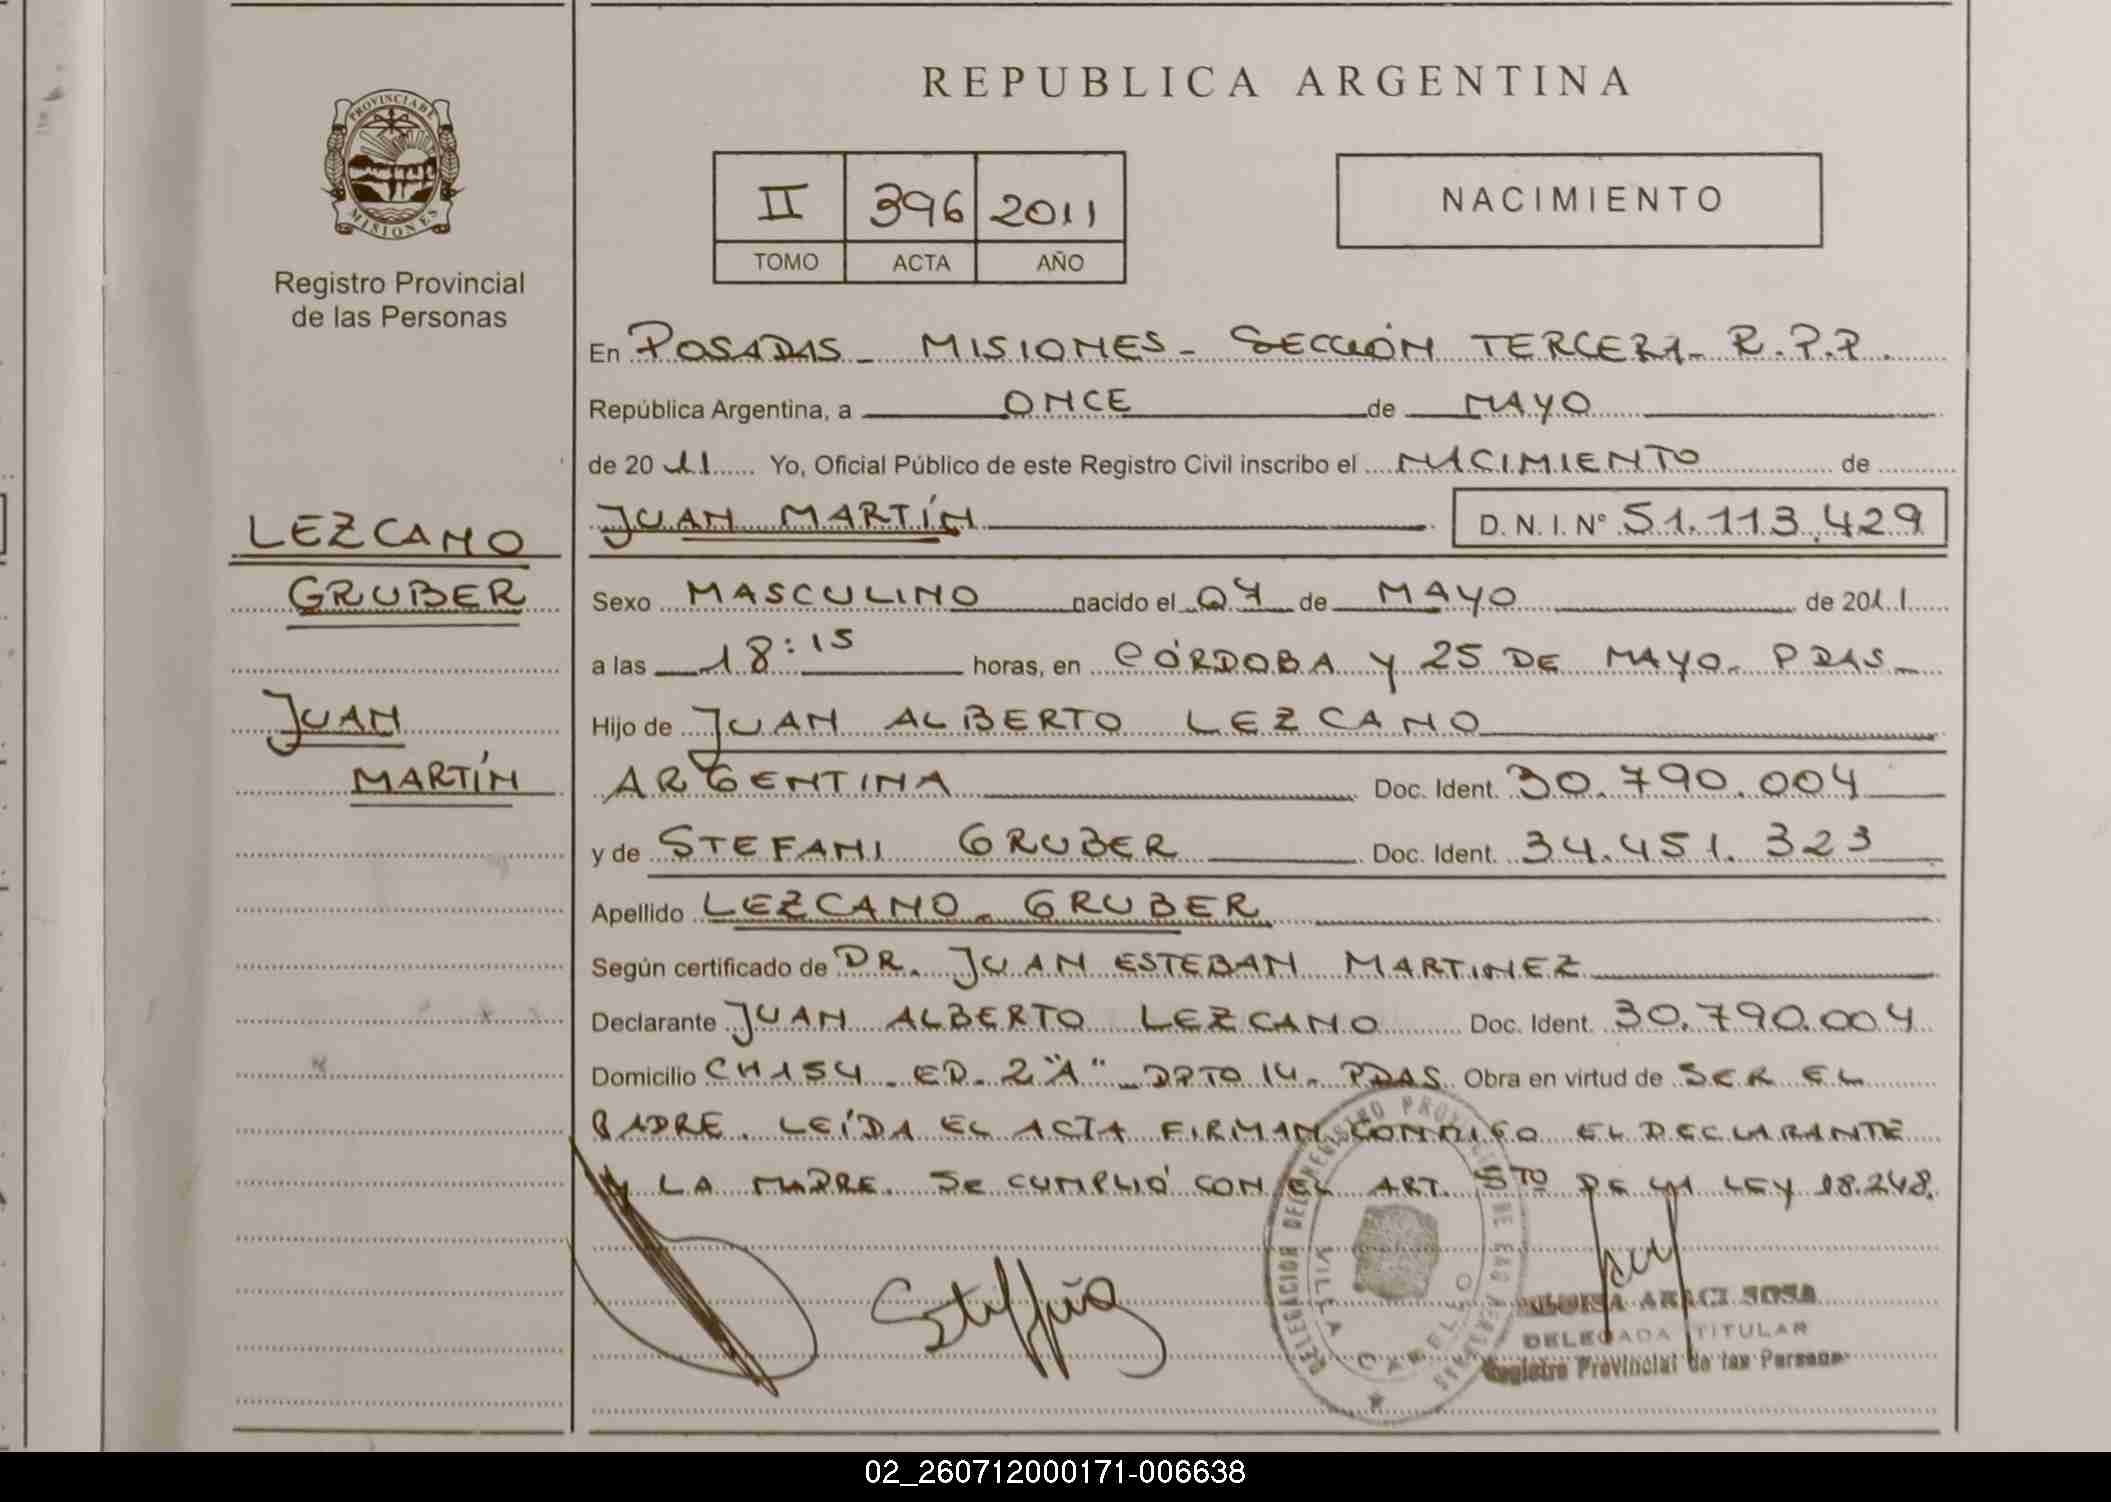 REPUBLICA ARGENTINA
PROVINCIA DE MISIONES
Registro Provincial
de las Personas
II 396 2011
TOMO ACTA AÑO
NACIMIENTO
LEZCANO
GRUBER
JUAN
MARTÍN
En POSADAS - MISIONES - SECCIÓN TERCERA - R.P.P.
República Argentina, a ONCE de MAYO
de 2011 Yo, Oficial Público de este Registro Civil inscribo el NACIMIENTO de
JUAN MARTÍN D.N.I. Nº 51.113.429
Sexo MASCULINO nacido el 07 de MAYO de 2011
a las 18:15 horas, en CÓRDOBA Y 25 DE MAYO - PDAS -
Hijo de JUAN ALBERTO LEZCANO
ARGENTINA Doc. Ident. 30.790.004
y de STEFANI GRUBER Doc. Ident. 34.451.323
Apellido LEZCANO - GRUBER
Según certificado de DR. JUAN ESTEBAN MARTINEZ
Declarante JUAN ALBERTO LEZCANO Doc. Ident. 30.790.004
Domicilio CH154 - ED. 2 "A" - DPTO 14 - PDAS Obra en virtud de SER EL
PADRE. LEÍDA EL ACTA FIRMAN CONMIGO EL DECLARANTE
Y LA MADRE. SE CUMPLIÓ CON EL ART. 5TO DE LA LEY 18.248.
DELEGACION DEL REGISTRO PROVINCIAL DE LAS PERSONAS
VILLA CABELLO
ARACI SOSA
DELEGADA TITULAR
Registro Provincial de las Personas
02_260712000171-006638